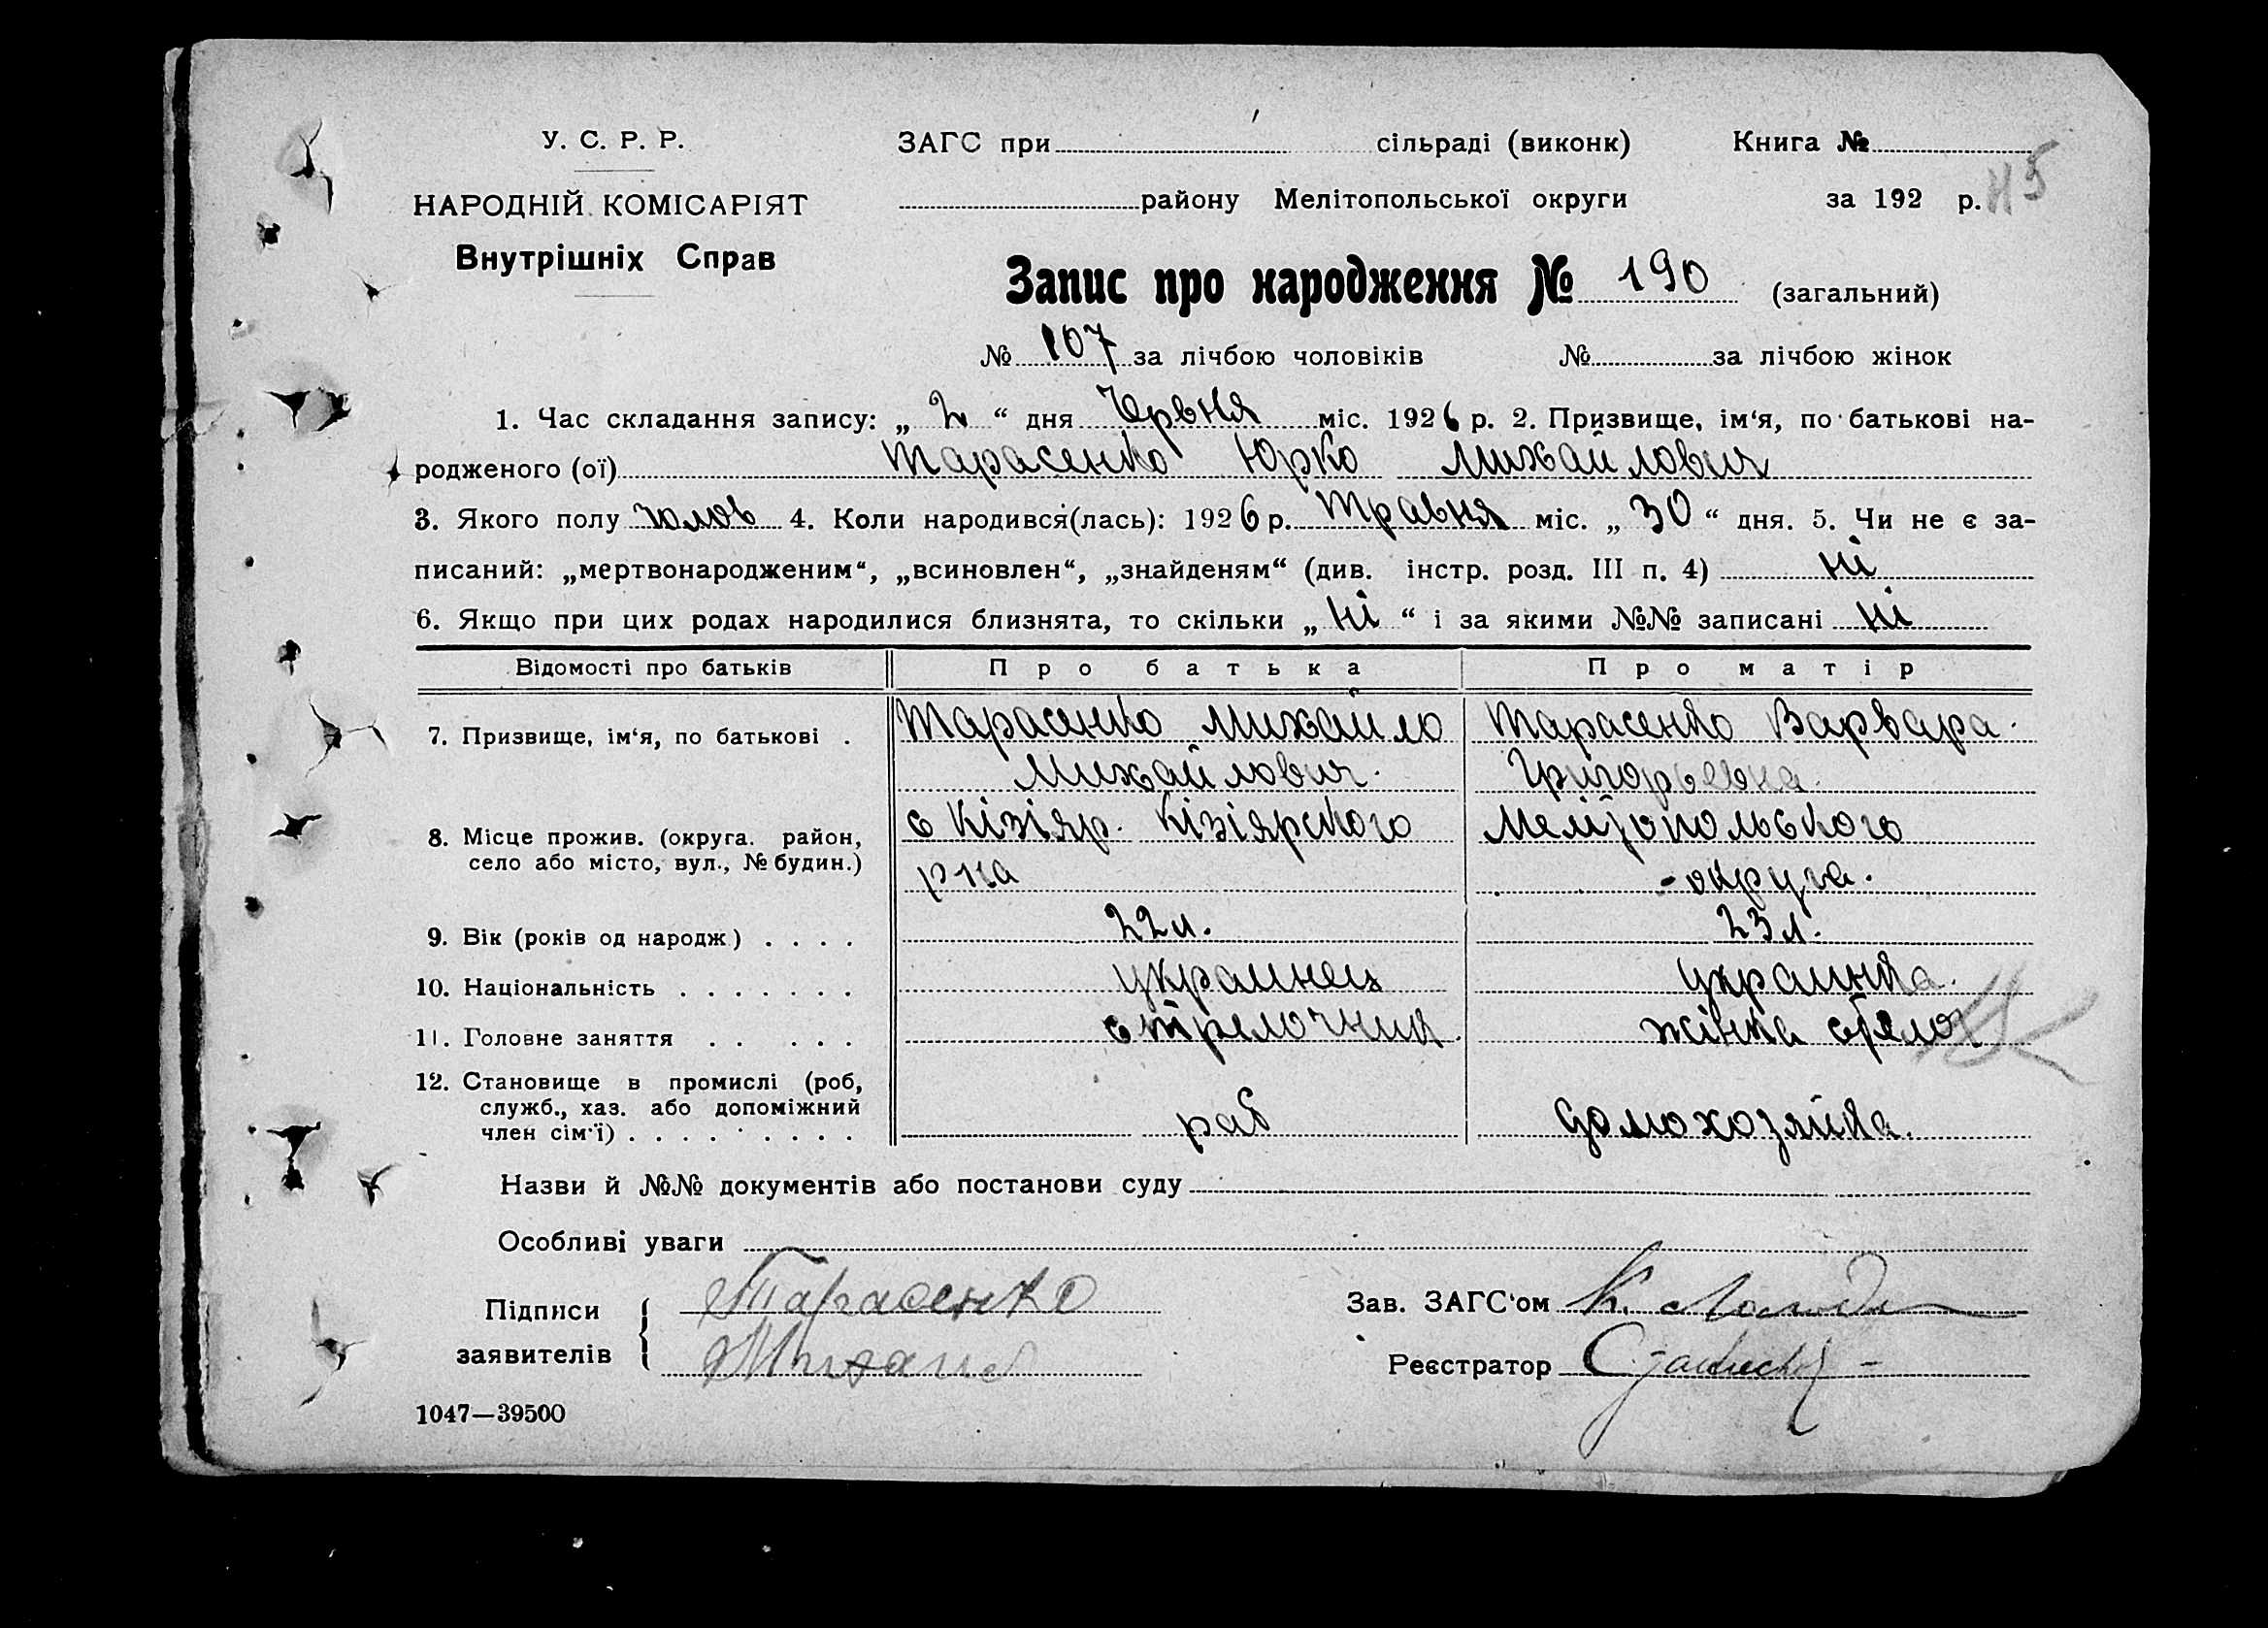 У. С. Р. Р.
НАРОДНІЙ КОМІСАРІЯТ
Внутрішніх Справ
ЗАГС при сільраді (виконк) Книга №
району Мелітопольської округи за 192 р. 115
Запис про народження № 190 (загальний)
№ 107 за лічбою чоловіків № за лічбою жінок
1. Час складання запису: „ 2 “ дня Червня міс. 1926 р. 2. Призвище, ім‘я, по батькові на-
родженого (ої) Тарасенко Юрко Михайлович
3. Якого полу чолов 4. Коли народився(лась): 1926 р. Травня міс. „ 30 “ дня. 5. Чи не є за-
писаний: „мертвонародженим“, „всиновлен“, „знайденям“ (див. інстр. розд. III п. 4) ні
6. Якщо при цих родах народилися близнята, то скільки „ ні “ і за якими №№ записані ні
Відомості про батьків Про батька Про матір
7. Призвище, ім‘я, по батькові . Тарасенко Михайло Тарасенко Варвара
Михайлович. Григорьевна
8. Місце прожив. (округа. район, село або місто, вул., № будин.) с Кізіяр. Кізіярского Мелітопольского
рна - округа.
9. Вік (років од народж) . . . . 22 л. 23 л.
10. Національність . . . . . . . украинец украинка.
11. Головне заняття . . . . . стрелочник. жінка стрелоч
12. Становище в промислі (роб,
служб., хаз. або допоміжний
член сім‘ї) . . . . . . . . . раб домохозяйка.
Назви й №№ документів або постанови суду
Особливі уваги
Підписи заявителів Тарасенко
Михаил
Зав. ЗАГС‘ом К.
Реєстратор
1047—39500